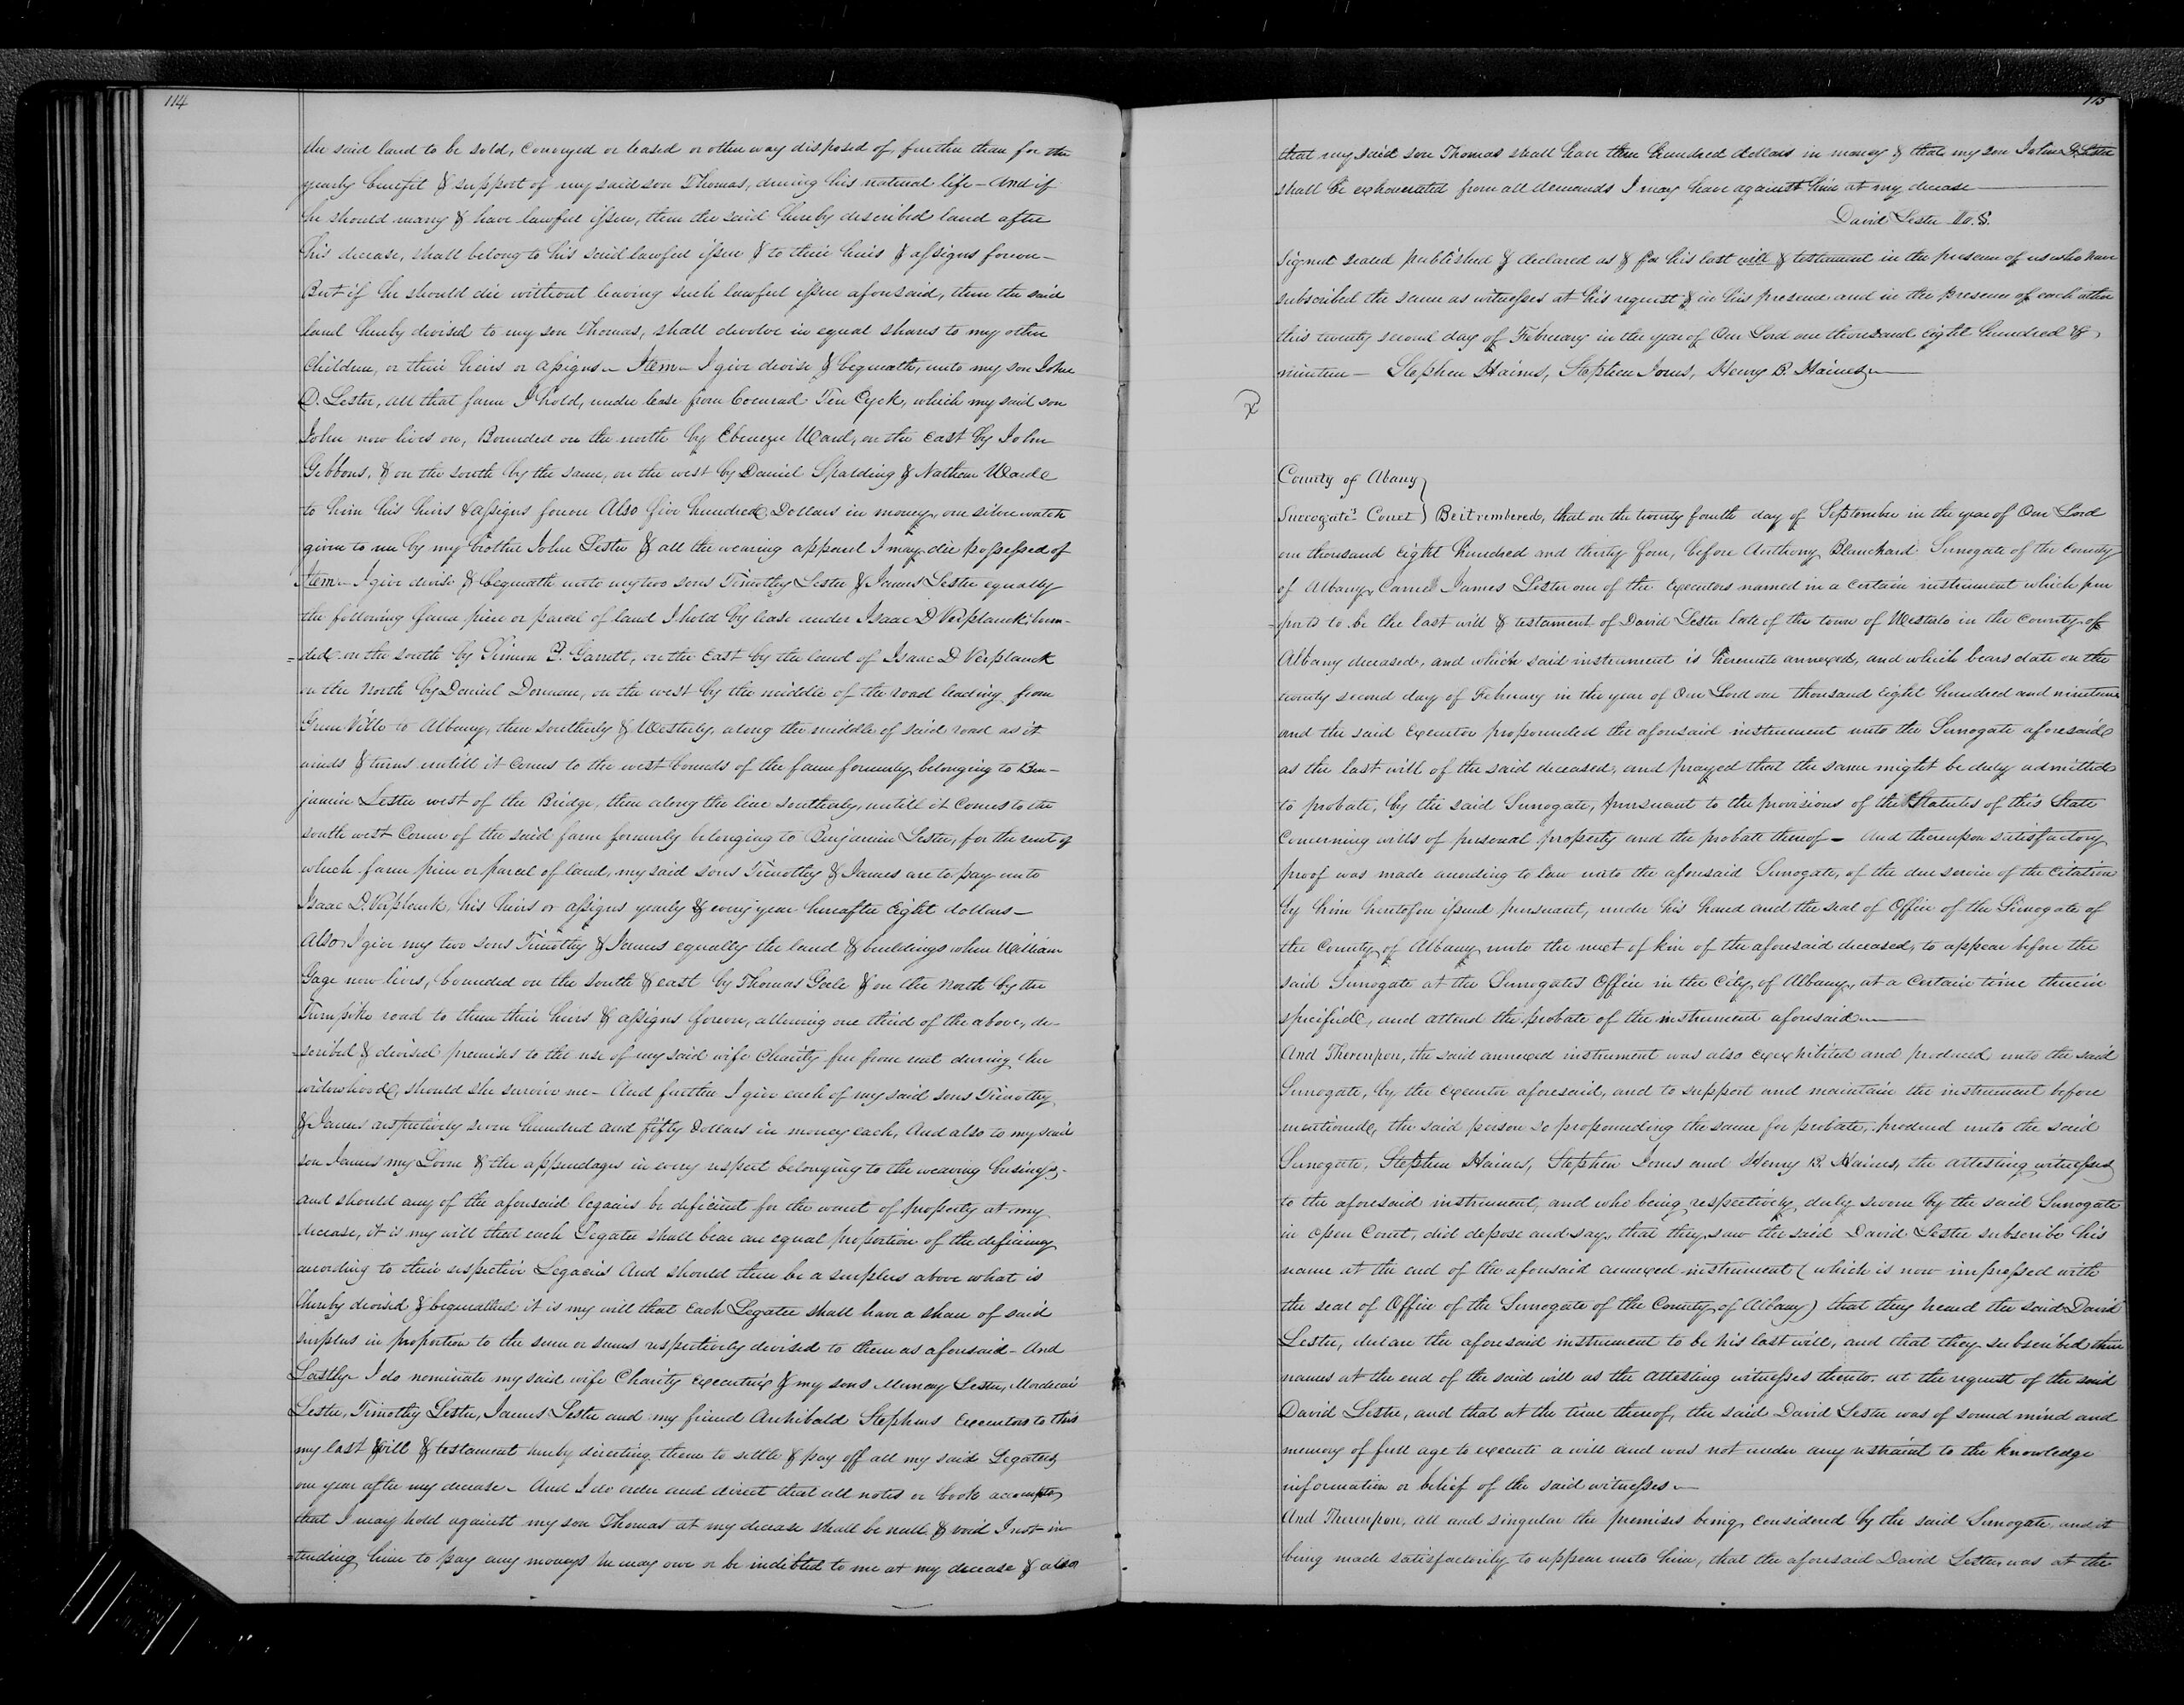 114
the said land to be sold, conveyed or leased or other way disposed of, further than for the
yearly benefit & support of my said son Thomas, during his natural life – And if
he should marry & have lawful issue, then the said hereby described land after
his decease, shall belong to his said lawful issue & to their heirs & assigns forever –
But if he should die without leaving such lawful issue aforesaid, then the said
land hereby devised to my son Thomas, shall devolve in equal shares to my other
Children, or their heirs or assigns – Item – I give devise & bequeath, unto my son John
D. Lester, all that farm I hold, under lease from Coenrad Ten Eyck, which my said son
John now lives on, Bounded on the north by Ebenezer Ward, on the East by John
Gibbons, & on the south by the same, on the west by Daniel Spalding & Nathan Ward
to him his heirs & assigns forever Also five hundred Dollars in money, one silver watch
given to me by my brother John Lester & all the wearing apparel I may die possessed of
Item – I give devise & bequeath unto my two sons Timothy Lester & James Lester equally
the following farm piece or parcel of land I hold by lease under Isaac D Verplanck, boun-
=ded on the south by Simeon Garrett, on the East by the land of Isaac D Verplanck
on the North by Daniel, on the west by the middle of the road leading from
Green Ville to Albany, then southerly & Westerly, along the middle of said road as it
winds & turns untill it Comes to the west bounds of the farm formerly, belonging to Ben-
jamin Lester west of the Bridge, then along the line southerly, untill it Comes to the
south west Corner of the said farm formerly belonging to Benjamin Lester, for the rent of
which farm piece or parcel of land, my said sons Timothy & James are to pay unto
Isaac D. Verplanck, his heirs or assigns yearly & every year hereafter Eight dollars –
Also I give my two sons Timothy & James equally the land & buildings where William
Gage now lives, bounded on the South & east by Thomas Geele & on the North by the
Turnpike road to them their heirs & assigns forever, allowing one third of the above, de-
scribed & devised premises to the use of my said wife Charity free from rent during her
widowhood, should she survive me – And further I give each of my said sons Timothy
& James respectively seven hundred and fifty Dollars in money each, And also to my said
son James my Loom & the appendages in every respect belonging to the weaving business,
and should any of the aforesaid legacies be deficient for the want of property at my
decease, it is my will that each Legatee shall bear an equal proportion of the deficiency
according to their respective Legacies And should there be a surplus above what is
hereby devised & bequeathed it is my will that Each Legatee shall have a share of said
surplus in proportion to the sum or sums respectively devised to them as aforesaid – And
Lastly I do nominate my said wife Charity executrix & my sons Murray Lester, Mordecai
Lester, Timothy Lester, James Lester and my friend Archibald Stephens Executors to this
my last will & testament hereby directing them to settle & pay off all my said Legatees
one year after my decease – And I do order and direct that all notes or book accompts,
that I may hold against my son Thomas at my decease shall be null & void I not in-
=tending him to pay any moneys he may owe or be indebted to me at my decease & also
115
that my said son Thomas shall have three hundred dollars in money & that my son John D Lester
shall be exhonerated from all demands I may have against him at my decease
David Lester
Signed sealed published & declared as & for his last will & testament in the presence of us who have
subscribed the same as witnesses at his request & in his presence and in the presence of each other
this twenty second day of February in the year of Our Lord one thousand eight hundred &
nineteen – Stephen Haines, Stephen Jones, Henry B. Haines
County of Abany
Surrogate's Court } Be it rembered, that on the twenty fourth day of September in the year of Our Lord
one thousand eight hundred and thirty four, before Anthony Blanchard Surrogate of the County
of Albany, Came James Lester one of the Executors named in a certain instrument which pur
=ports to be the last will & testament of David Lester late of the town of Westerlo in the County of
Albany deceased, and which said instrument is hereunto annexed, and which bears date on the
twenty second day of February in the year of Our Lord one thousand eight hundred and nineteen
and the said Executor propounded the aforesaid instrument unto the Surrogate aforesaid
as the last will of the said deceased, and prayed that the same might be duly admitted
to probate, by the said Surrogate, pursuant to the provisions of the Statutes of this State
concerning wills of personal property and the probate thereof – And thereupon satisfactory
proof was made according to law unto the aforesaid Surrogate, of the due service of the Citation
by him heretofore issued pursuant, under his hand and the seal of Office of the Surrogate of
the County of Albany unto the next of kin of the aforesaid deceased, to appear before the
said Surrogate at the Surrogates Office in the City of Albany, at a Certain time therein
specified, and attend the probate of the instrument aforesaid
And Thereupon, the said annexed instrument was also exexhibited and produced unto the said
Surrogate, by the executor aforesaid, and to support and maintain the instrument before
mentioned, the said person so propounding the same for probate, produced unto the said
Surrogate, Stephen Haines, Stephen Jones and Henry B. Haines, the attesting witnesses
to the aforesaid instrument, and who being respectively duly sworn by the said Surrogate
in open Court, did depose and say, that they saw the said David Lester subscribe his
name at the end of the aforesaid annexed instrument (which is now impressed with
the seal of Office of the Surrogate of the County of Albany) that they heard the said David
Lester, declare the aforesaid instrument to be his last will, and that they subscribed their
names at the end of the said will as the attesting witnesses thereto. at the request of the said
David Lester, and that at the time thereof, the said David Lester was of sound mind and
memory of full age to execute a will and was not under any restraint to the knowledge
information or belief of the said witnesses
And Thereupon, all and singular the premises being considered by the said Surrogate, and it
being made satisfactorily to appear unto him, that the aforesaid David Lester, was at the